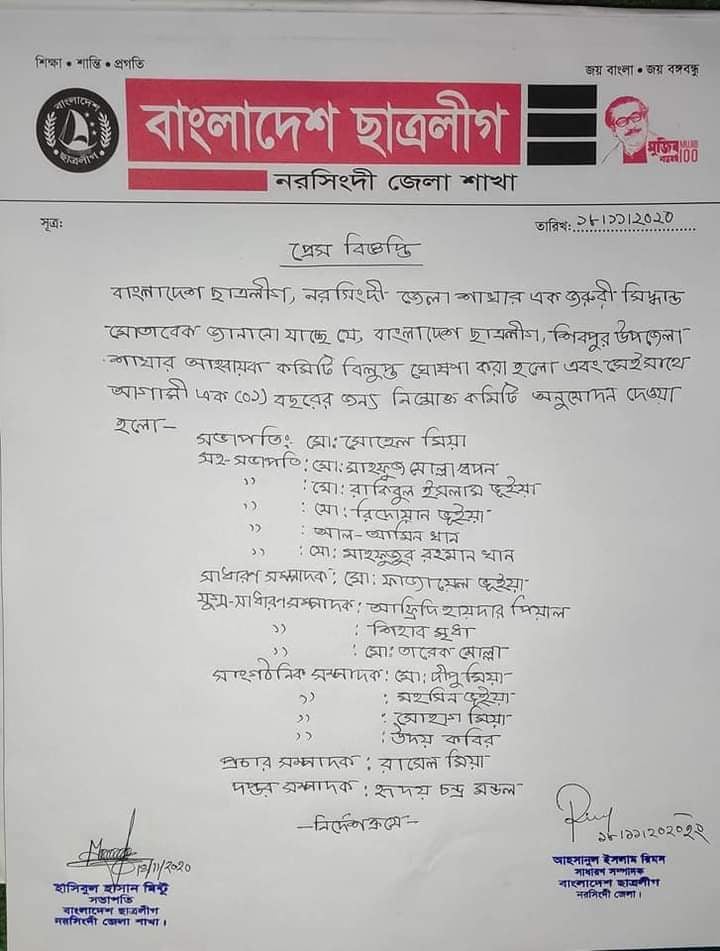 শিক্ষা • শান্তি • প্রগতি
জয় বাংলা • জয় বঙ্গবন্ধু
বাংলাদেশ
ছাত্রলীগ
বাংলাদেশ ছাত্রলীগ
নরসিংদী জেলা শাখা
মুজিব 100
সূত্রঃ
তারিখঃ ১৮।১১।২০২০
প্রেস বিজ্ঞপ্তি
বাংলাদেশ ছাত্রলীগ, নরসিংদী জেলা শাখার এক জরুরী সিদ্ধান্ত
মোতাবেক জানানো যাচ্ছে যে, বাংলাদেশ ছাত্রলীগ, শিবপুর উপজেলা
শাখার আহবায়ক কমিটি বিলুপ্ত ঘোষণা করা হলো এবং সেই সাথে
আগামী এক (০১) বছরের জন্য নিম্নোক্ত কমিটি অনুমোদন দেওয়া
হলো–
সভাপতি: মো: সোহেল মিয়া
সহ-সভাপতি: মো: মাহফুজ মোল্লা স্বপন
" : মো: রাকিবুল ইসলাম ভূইয়া
" : মো: রিদোয়ান ভূইয়া
" : আল-আমিন খান
" : মো: মাহফুজুর রহমান খান
সাধারণ সম্পাদক: মো: ফাজায়েল ভূইয়া
যুগ্ম-সাধারণ সম্পাদক: আফ্রিদি হায়দার পিয়াল
" : শিহাব মৃধা
" : মো: তারেক মোল্লা
সাংগঠনিক সম্পাদক: মো: দীপু মিয়া
" : মহসিন ভূইয়া
" : সোহাগ মিয়া
" : উদয় কবির
প্রচার সম্পাদক: রাসেল মিয়া
দপ্তর সম্পাদক: হৃদয় চন্দ্র মন্ডল
–নির্দেশক্রমে–
18/11/2020
হাসিবুল হাসান মিন্টু
সভাপতি
বাংলাদেশ ছাত্রলীগ
নরসিংদী জেলা শাখা।
আহসানুল ইসলাম রিমন
সাধারণ সম্পাদক
বাংলাদেশ ছাত্রলীগ
নরসিংদী জেলা।